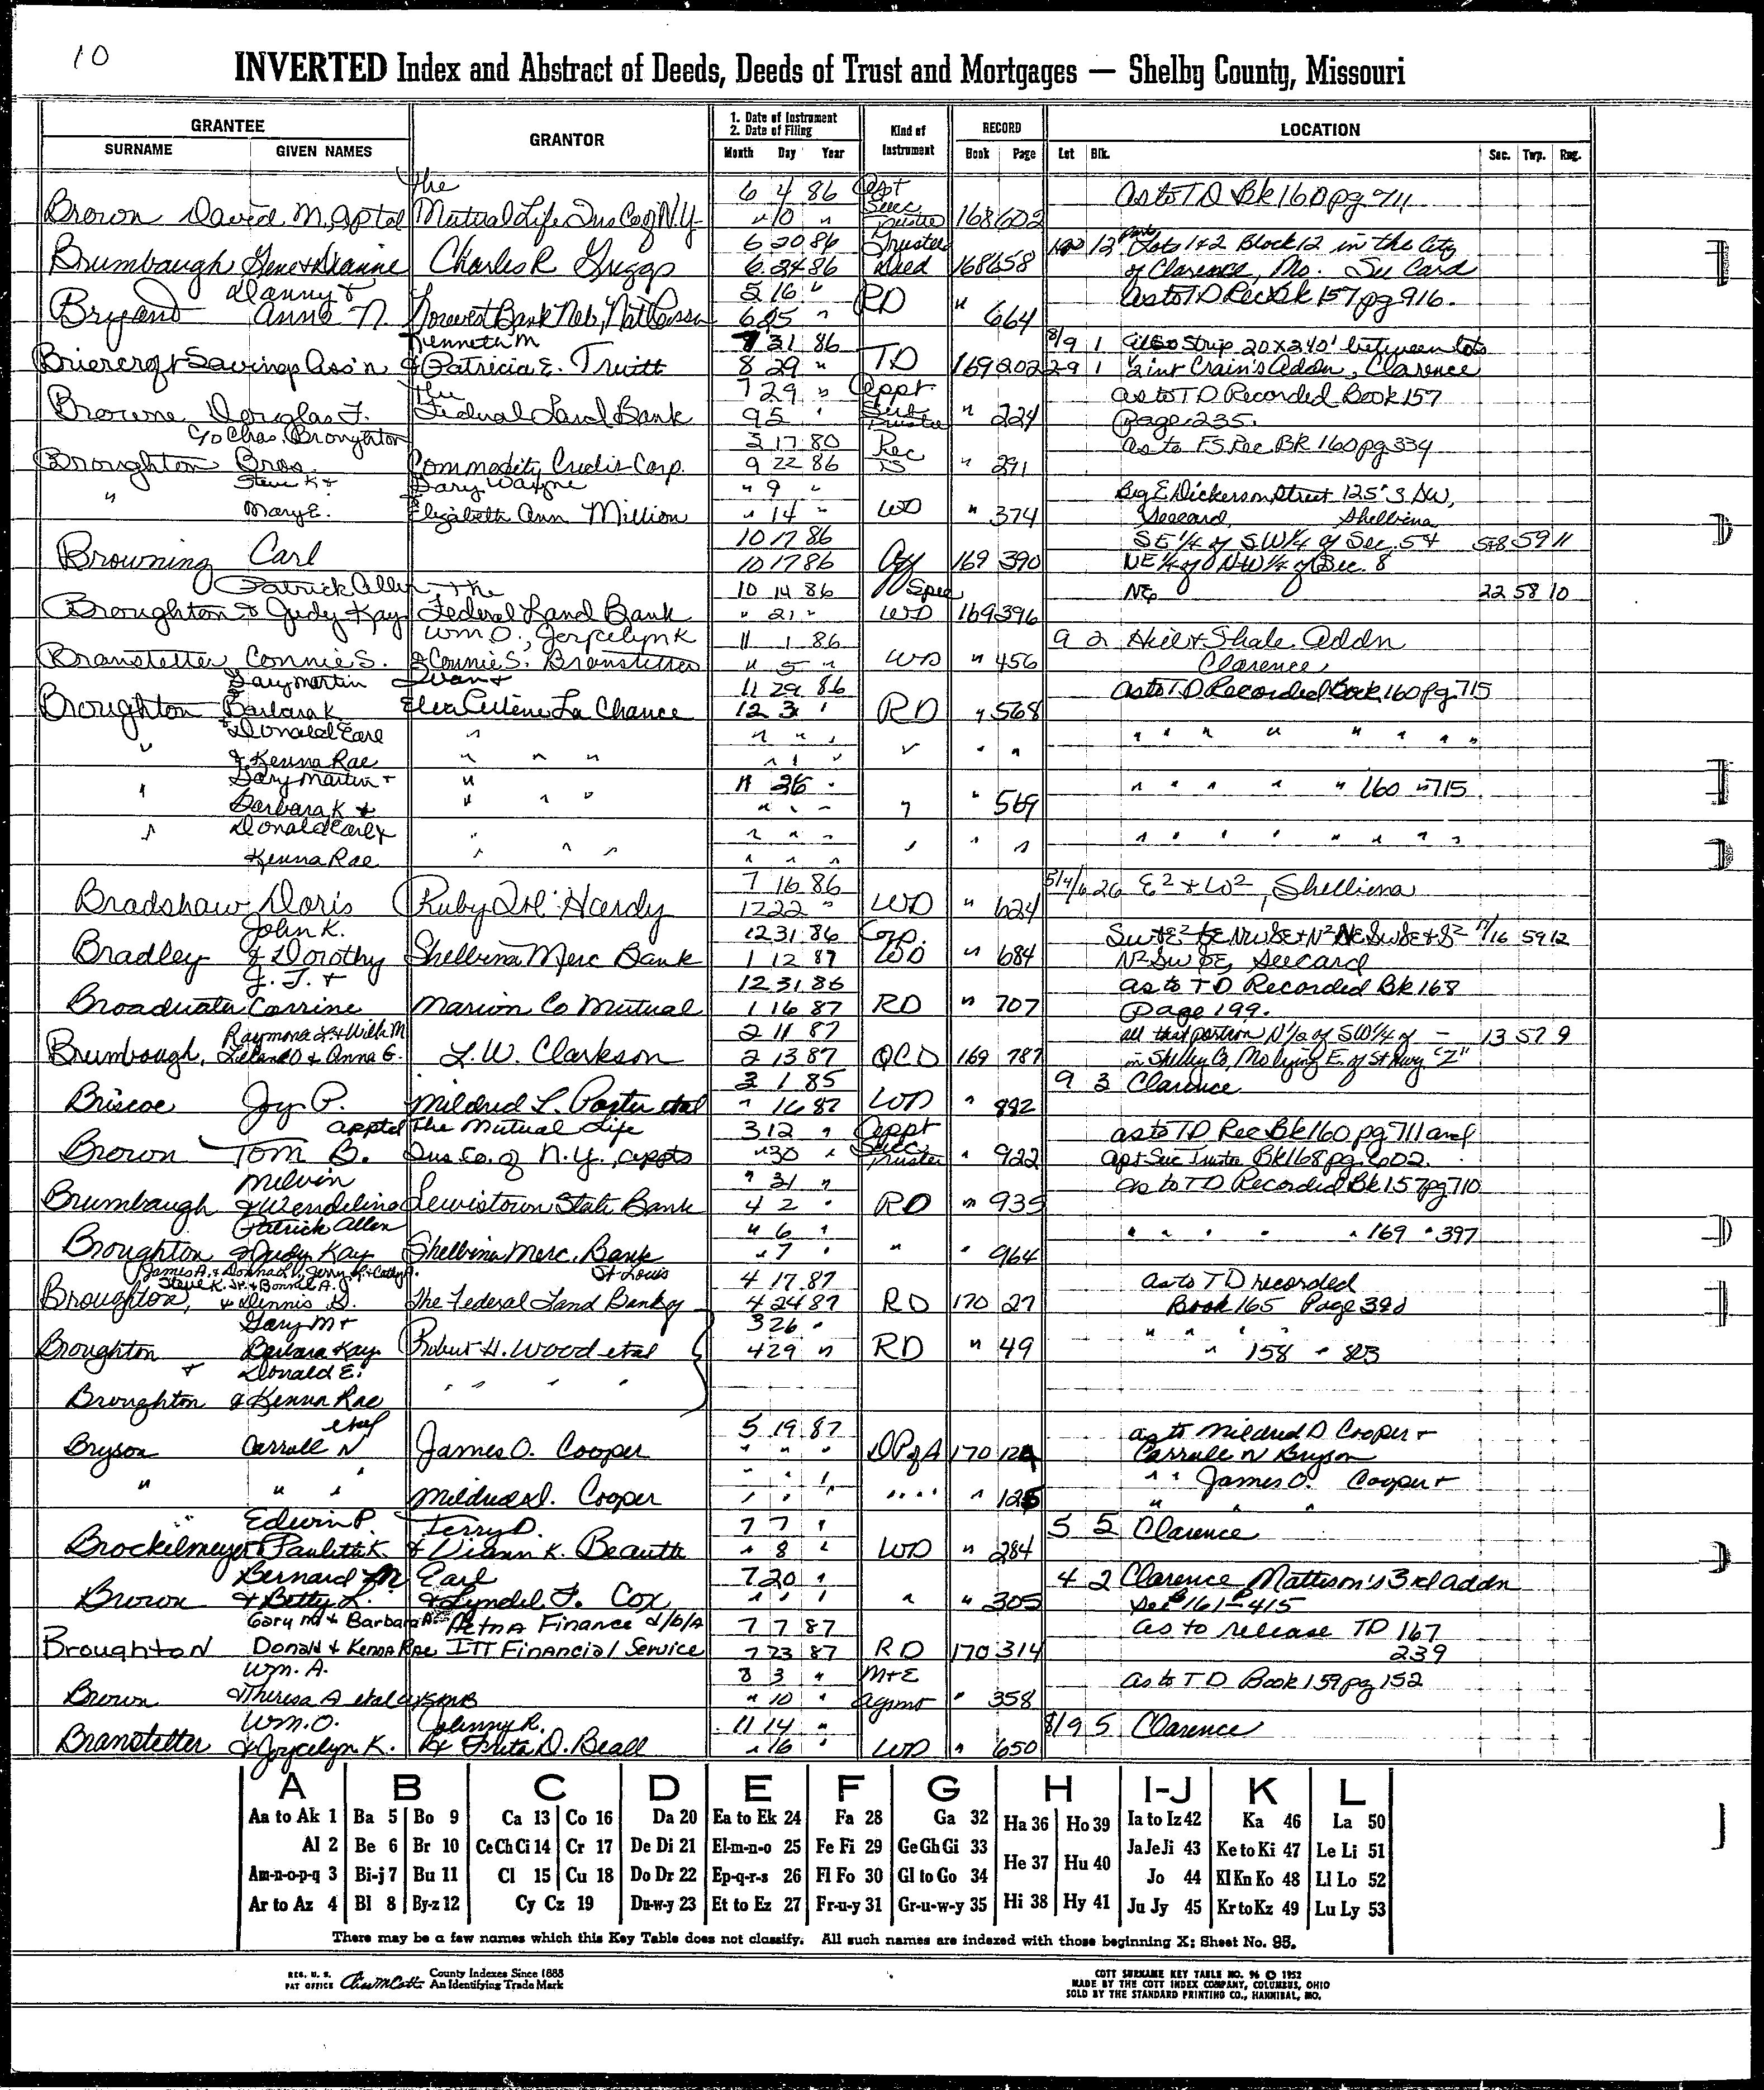 10
INVERTED Index and Abstract of Deeds, Deeds of Trust and Mortgages — Shelby County, Missouri
GRANTEE GRANTOR 1. Date of Instrument 2. Date of Filing Kind of Instrument RECORD LOCATION
SURNAME GIVEN NAMES Month Day Year Book Page Lot Blk. Sec. Twp. Rng.
The 6 4 86 Apt Succ As to TD Bk 160 pg 711
Brown David M, Aptd Mutual Life Ins Co of N.Y. " 10 " Trustee 168 602
6 20 86 Trustee 1&2 12 part Lots 1&2 Block 12 in the City
Brumbaugh Gene & Dianne Charles R Griggs 6 24 86 Deed 168 658 of Clarence, Mo. See Card
Danny & 5 16 " As to TD Rec Bk 157 pg 916.
Bryand Anne N. Norwest Bank Neb, Nat'l Assn 6 25 " RD " 664
Kenneth M 7 31 86 8/9 1 also Strip 20 x 240' between lots
Briercroft Savings Ass'n & Patricia E. Truitt 8 29 " TD 169 202 2-9 1 1/2 int Crain's Addn, Clarence
The 7 29 " Appt as to TD Recorded Book 157
Browne Douglas F. Federal Land Bank 9 5 " Sub Trustee " 224 Page 235.
c/o Chas. Broughton 3 17 80 Rec as to FS Rec BK 160 pg 334
Broughton Bros. Commodity Credit Corp. 9 22 86 FS " 291
Steve K & Gary Wayne " 9 " Beg E Dickerson Street 125' S
" Mary E. Elizabeth Ann Million " 14 " WD " 374 See card, Shelbina
10 17 86 SE 1/4 of SW 1/4 of Sec. 5 & 5&8 59 11
Browning Carl 10 17 86 Aff 169 390 NE 1/4 of NW 1/4 of Sec. 8
Patrick Allen The 10 14 86 Spec NE 22 58 10
Broughton & Judy Kay Federal Land Bank " 21 " WD 169 396
Wm O., Joycelyn K 11 1 86 9 2 Hill & Shale Addn
Branstetter Connie S. & Connie S. Branstetter " 5 " WD " 456 Clarence
Gary Martin Ivan & 11 29 86 As to TD Recorded Book 160 Pg. 715
Broughton Barbara K Elva Arlene La Chance 12 3 ' RD " 568
& Donald Earl " " " " " " " " " " " " "
" & Kenna Rae " " " " " " " " "
Gary Martin & " 11 26 " " " " " " 160 " 715
" Barbara K & " " " " " " " " 569
" Donald Earl & " " " " " " " " " " " " "
Kenna Rae " " " " " " " " "
7 16 86 5/4/6 26 E² & W², Shelbina
Bradshaw Doris Ruby Hardy 12 22 " WD " 624
John K. 12 31 86 Corp. 7/16 59 12
Bradley & Dorothy Shelbina Merc Bank 1 12 87 WD " 684 N² SW SE, See card
J. T. & 12 31 86 as to TD Recorded Bk 168
Broaduater Corrine Marion Co Mutual 1 16 87 RD " 707 Page 199.
Raymond L. & Wilh M 2 11 87 all that portion N 1/2 of SW 1/4 of — 13 57 9
Brumbaugh, Leland O & Anna G. L.W. Clarkson 2 13 87 QCD 169 787 in Shelby Co, Mo lying E. of St Hwy "Z"
3 1 85 9 3 Clarence
Briscoe Joy P. Mildred L. Porter etal " 16 87 WD " 892
apptd The Mutual Life 3 12 " Appt as to TD Rec Bk 160 pg 711 and
Brown Tom B. Ins Co. of N.Y., appts " 30 " Succ Trustee " 922 Apt Suc Truste Bk 168 pg. 602.
Melvin " 31 " as to TD Recorded Bk 157 pg 710
Brumbaugh & Wendelina Lewistown State Bank 4 2 " RD " 935
Patrick Allen " 6 ' " " " " " 169 " 397
Broughton & Judy Kay Shelbina Merc. Bank " 7 ' " " 964
James A. & Donna L., Jerry L. & Cathy A. St Louis 4 17 87 as to TD recorded
Steve K. Jr. & Bonnie A.
Broughton, & Dennis D. The Federal Land Bank of 4 24 87 RD 170 27 Book 165 Page 390
Gary M & 3 26 " " " " "
Broughton Barbara Kay Robert H. Wood etal 4 29 " RD " 49 " 158 " 823
& Donald E.
Broughton & Kenna Rae " " " "
etal 5 19 87 as to Mildred D Cooper &
Bryson Carroll N James O. Cooper " " " DP of A 170 124 Carroll N Bryson
" " " " ' " " James O. Cooper &
" " Mildred D. Cooper " " " " " " " " 125 " " "
Edwin P. Terry D. 7 7 ' 5 5 Clarence
Brockelmeyer & Paulette K. & Diann K. Beauth " 8 " WD " 284
Bernard M Earl 7 20 ' 4 2 Clarence Mattison's 3rd Addn
Brown & Betty L. & Lyndel F. Cox " " ' " " 305 See 161-415
Gary M & Barbara Aetna Finance d/b/a 7 7 87 as to release TD 167
Broughton Donald & Kenna Rae ITT Financial Service 7 23 87 RD 170 314 239
Wm. A. 8 3 " M+E as to TD Book 159 pg 152
Brown & Theresa A etal " 10 " Agmt " 358
Wm. O. Johnny R. 11 14 " 8/9 5 Clarence
Branstetter & Joycelyn K. & Freta D. Beall " 16 ' WD " 650
A B C D E F G H I-J K L
Aa to Ak 1 Ba 5 Bo 9 Ca 13 Co 16 Da 20 Ea to Ek 24 Fa 28 Ga 32 Ha 36 Ho 39 Ia to Iz 42 Ka 46 La 50
Al 2 Be 6 Br 10 Ce Ch Ci 14 Cr 17 De Di 21 El-m-n-o 25 Fe Fi 29 Ge Gh Gi 33 He 37 Hu 40 Ja Je Ji 43 Ke to Ki 47 Le Li 51
Am-n-o-p-q 3 Bi-j 7 Bu 11 Cl 15 Cu 18 Do Dr 22 Ep-q-r-s 26 Fl Fo 30 Gl to Go 34 Jo 44 Kl Kn Ko 48 Ll Lo 52
Ar to Az 4 Bl 8 By-z 12 Cy Cz 19 Du-w-y 23 Et to Ez 27 Fr-u-y 31 Gr-u-w-y 35 Hi 38 Hy 41 Ju Jy 45 Kr to Kz 49 Lu Ly 53
There may be a few names which this Key Table does not classify. All such names are indexed with those beginning X; Sheet No. 95.
REG. U. S. PAT OFFICE County Indexes Since 1888 An Identifying Trade Mark
COTT SURNAME KEY TABLE NO. 96 © 1952
MADE BY THE COTT INDEX COMPANY, COLUMBUS, OHIO
SOLD BY THE STANDARD PRINTING CO., HANNIBAL, MO.